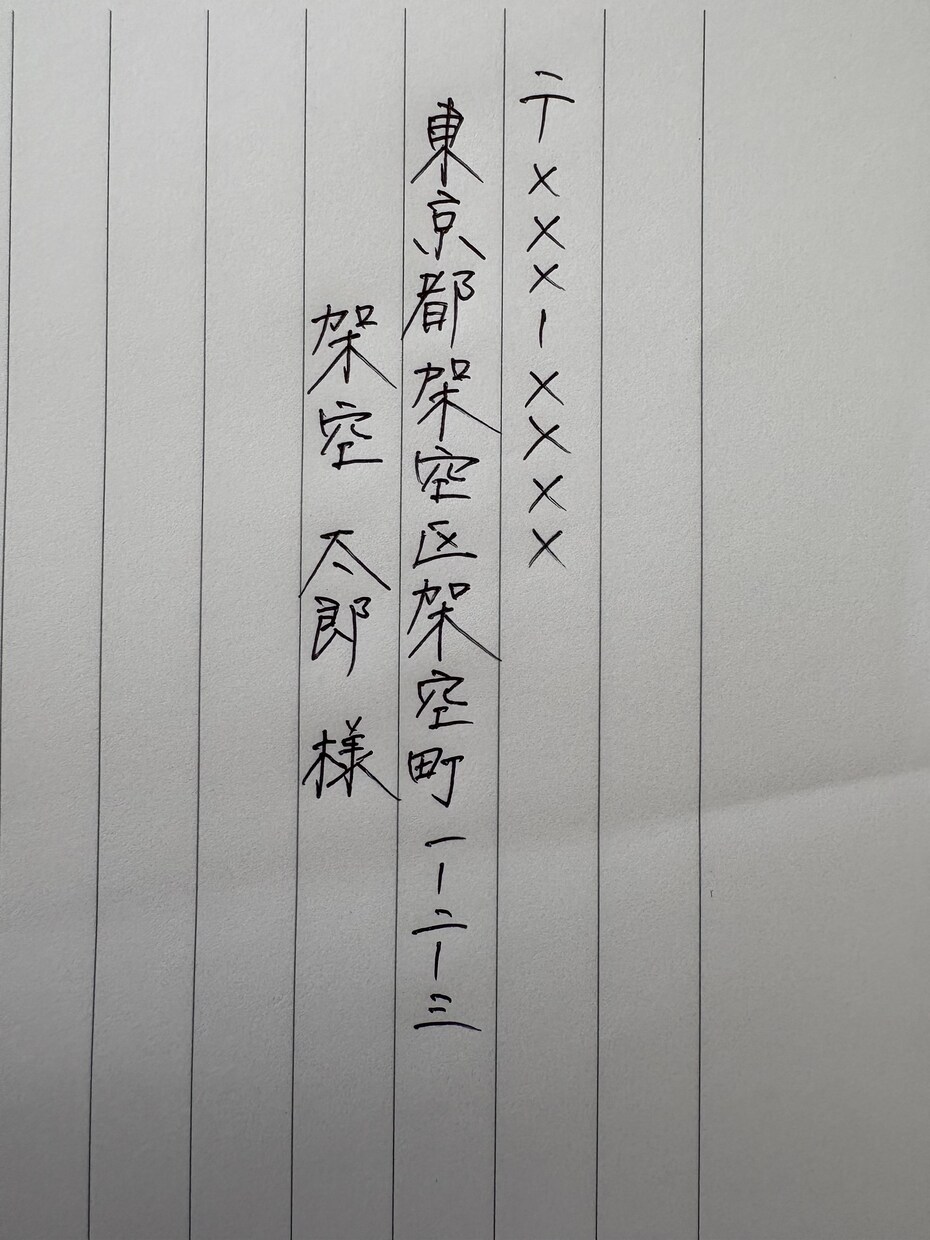 〒×××-××××
東京都架空区架空町一-二-三
架空 太郎 様